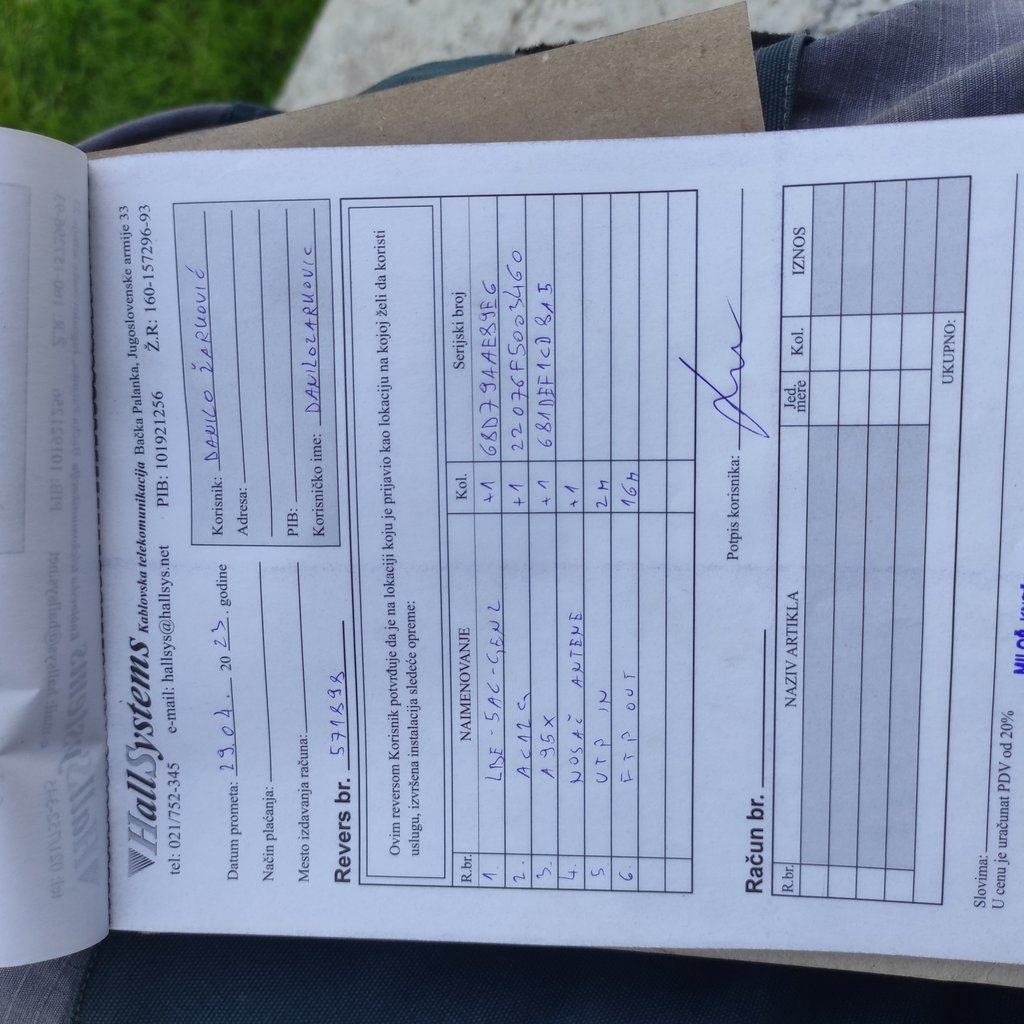 HallSystems Kablovska telekomunikacija Bačka Palanka, Jugoslovenske armije 33
tel: 021/752-345 e-mail: hallsys@hallsys.net PIB: 101921256 Ž.R: 160-157296-93
Datum prometa: 29.04. 2023. godine
Način plaćanja:
Mesto izdavanja računa:
Korisnik: DANILO ŽARKOVIĆ
Adresa:
PIB:
Korisničko ime: DANILOZARKOVIC
Revers br. 571898
Ovim reversom Korisnik potvrđuje da je na lokaciji koju je prijavio kao lokaciju na kojoj želi da koristi
uslugu, izvršena instalacija sledeće opreme:
R.br. NAIMENOVANJE Kol. Serijski broj
1. LBE-5AC-GEN2 +1 68D79AAE89E6
2. AC12G +1 22076F5003460
3. A95X +1 681DEF1CD8A5
4. NOSAČ ANTENE +1
5 UTP IN 2m
6 FTP OUT 16m
Potpis korisnika:
Račun br.
R.br. NAZIV ARTIKLA Jed. mere Kol. IZNOS
UKUPNO:
Slovima:
U cenu je uračunat PDV od 20%